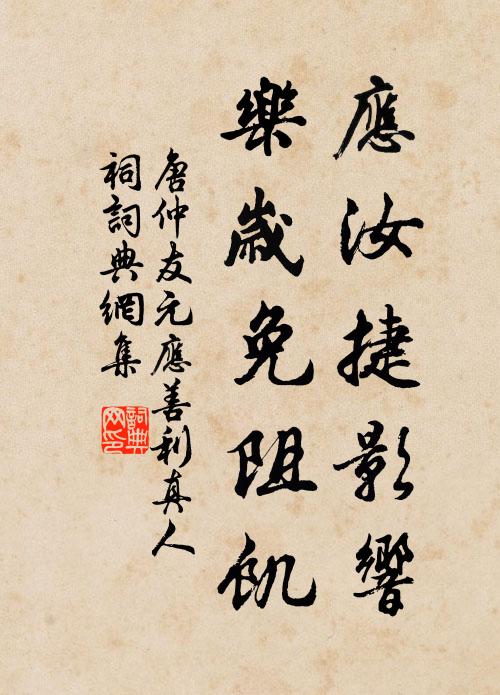 應汝捷影響
樂歲免阻飢
唐仲友元應善利真人
祠詞典網集
詞典網印